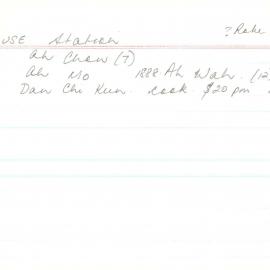 ? Robe
USE Station
Ah Chow (7)
Ah Mo 1888 Ah Wah. (12)
Dan Chi Kun. cook $20 pm